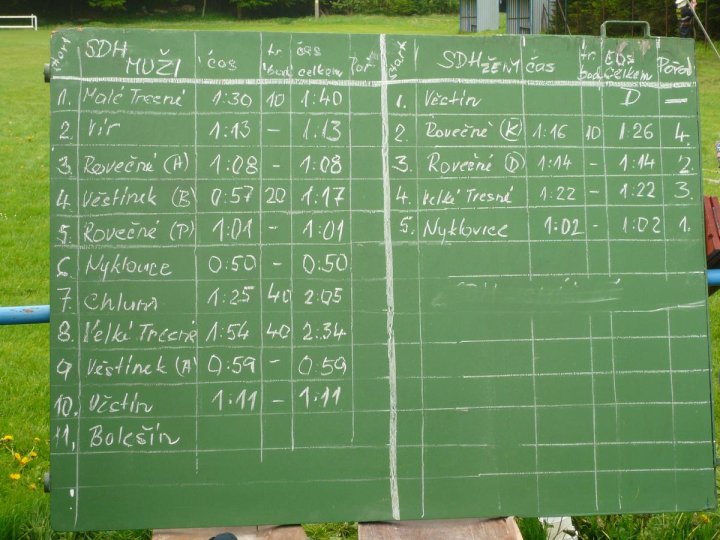 Start SDH MUŽI čas tr. bod. čas celkem Poř.
1. Malé Tresné 1:30 10 1:40
2. Vír 1:13 - 1:13
3. Rovečné (A) 1:08 - 1:08
4. Věstínek (B) 0:57 20 1:17
5. Rovečné (P) 1:01 - 1:01
6. Nyklovice 0:50 - 0:50
7. Chlum 1:25 40 2:05
8. Velké Tresné 1:54 40 2:34
9 Věstínek (A) 0:59 - 0:59
10. Věstín 1:11 - 1:11
11. Bolešín
Start SDH ŽENY čas tr. bod. čas celkem Pořad
1. Věstín D -
2. Rovečné (K) 1:16 10 1:26 4.
3. Rovečné (D) 1:14 - 1:14 2.
4. Velké Tresné 1:22 - 1:22 3.
5. Nyklovice 1:02 - 1:02 1.